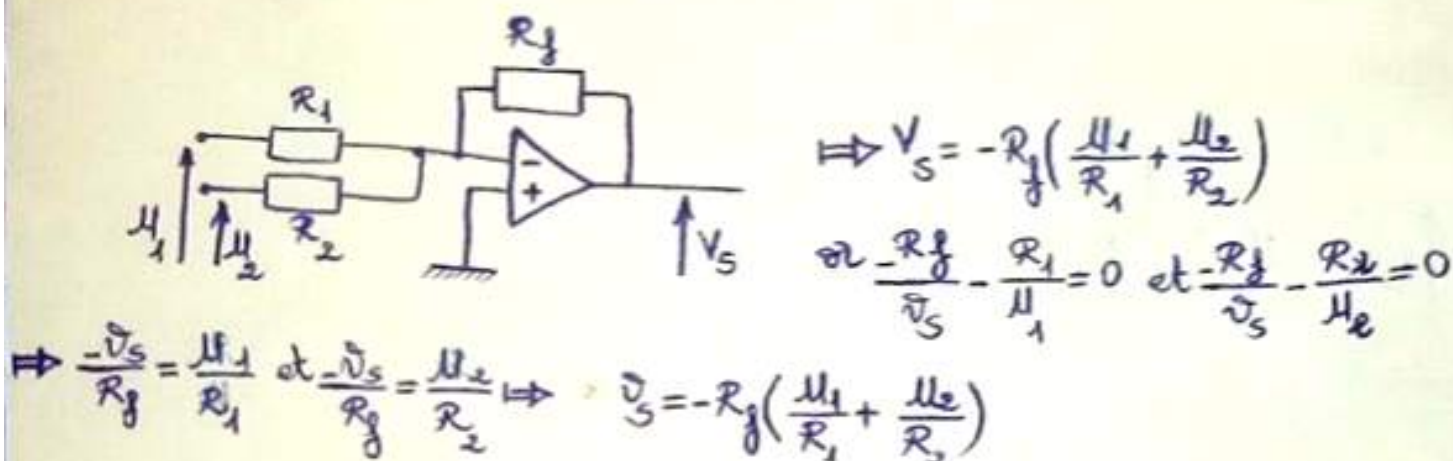 R_f
R_1
R_2
μ_1
μ_2
-
+
V_S
⇒ V_S = -R_f(μ_1/R_1 + μ_2/R_2)
or -R_f/v_S - R_1/μ_1 = 0 et -R_f/v_S - R_2/μ_2 = 0
⇒ -v_S/R_f = μ_1/R_1 et -v_S/R_f = μ_2/R_2 ⇒ v_S = -R_f(μ_1/R_1 + μ_2/R_2)